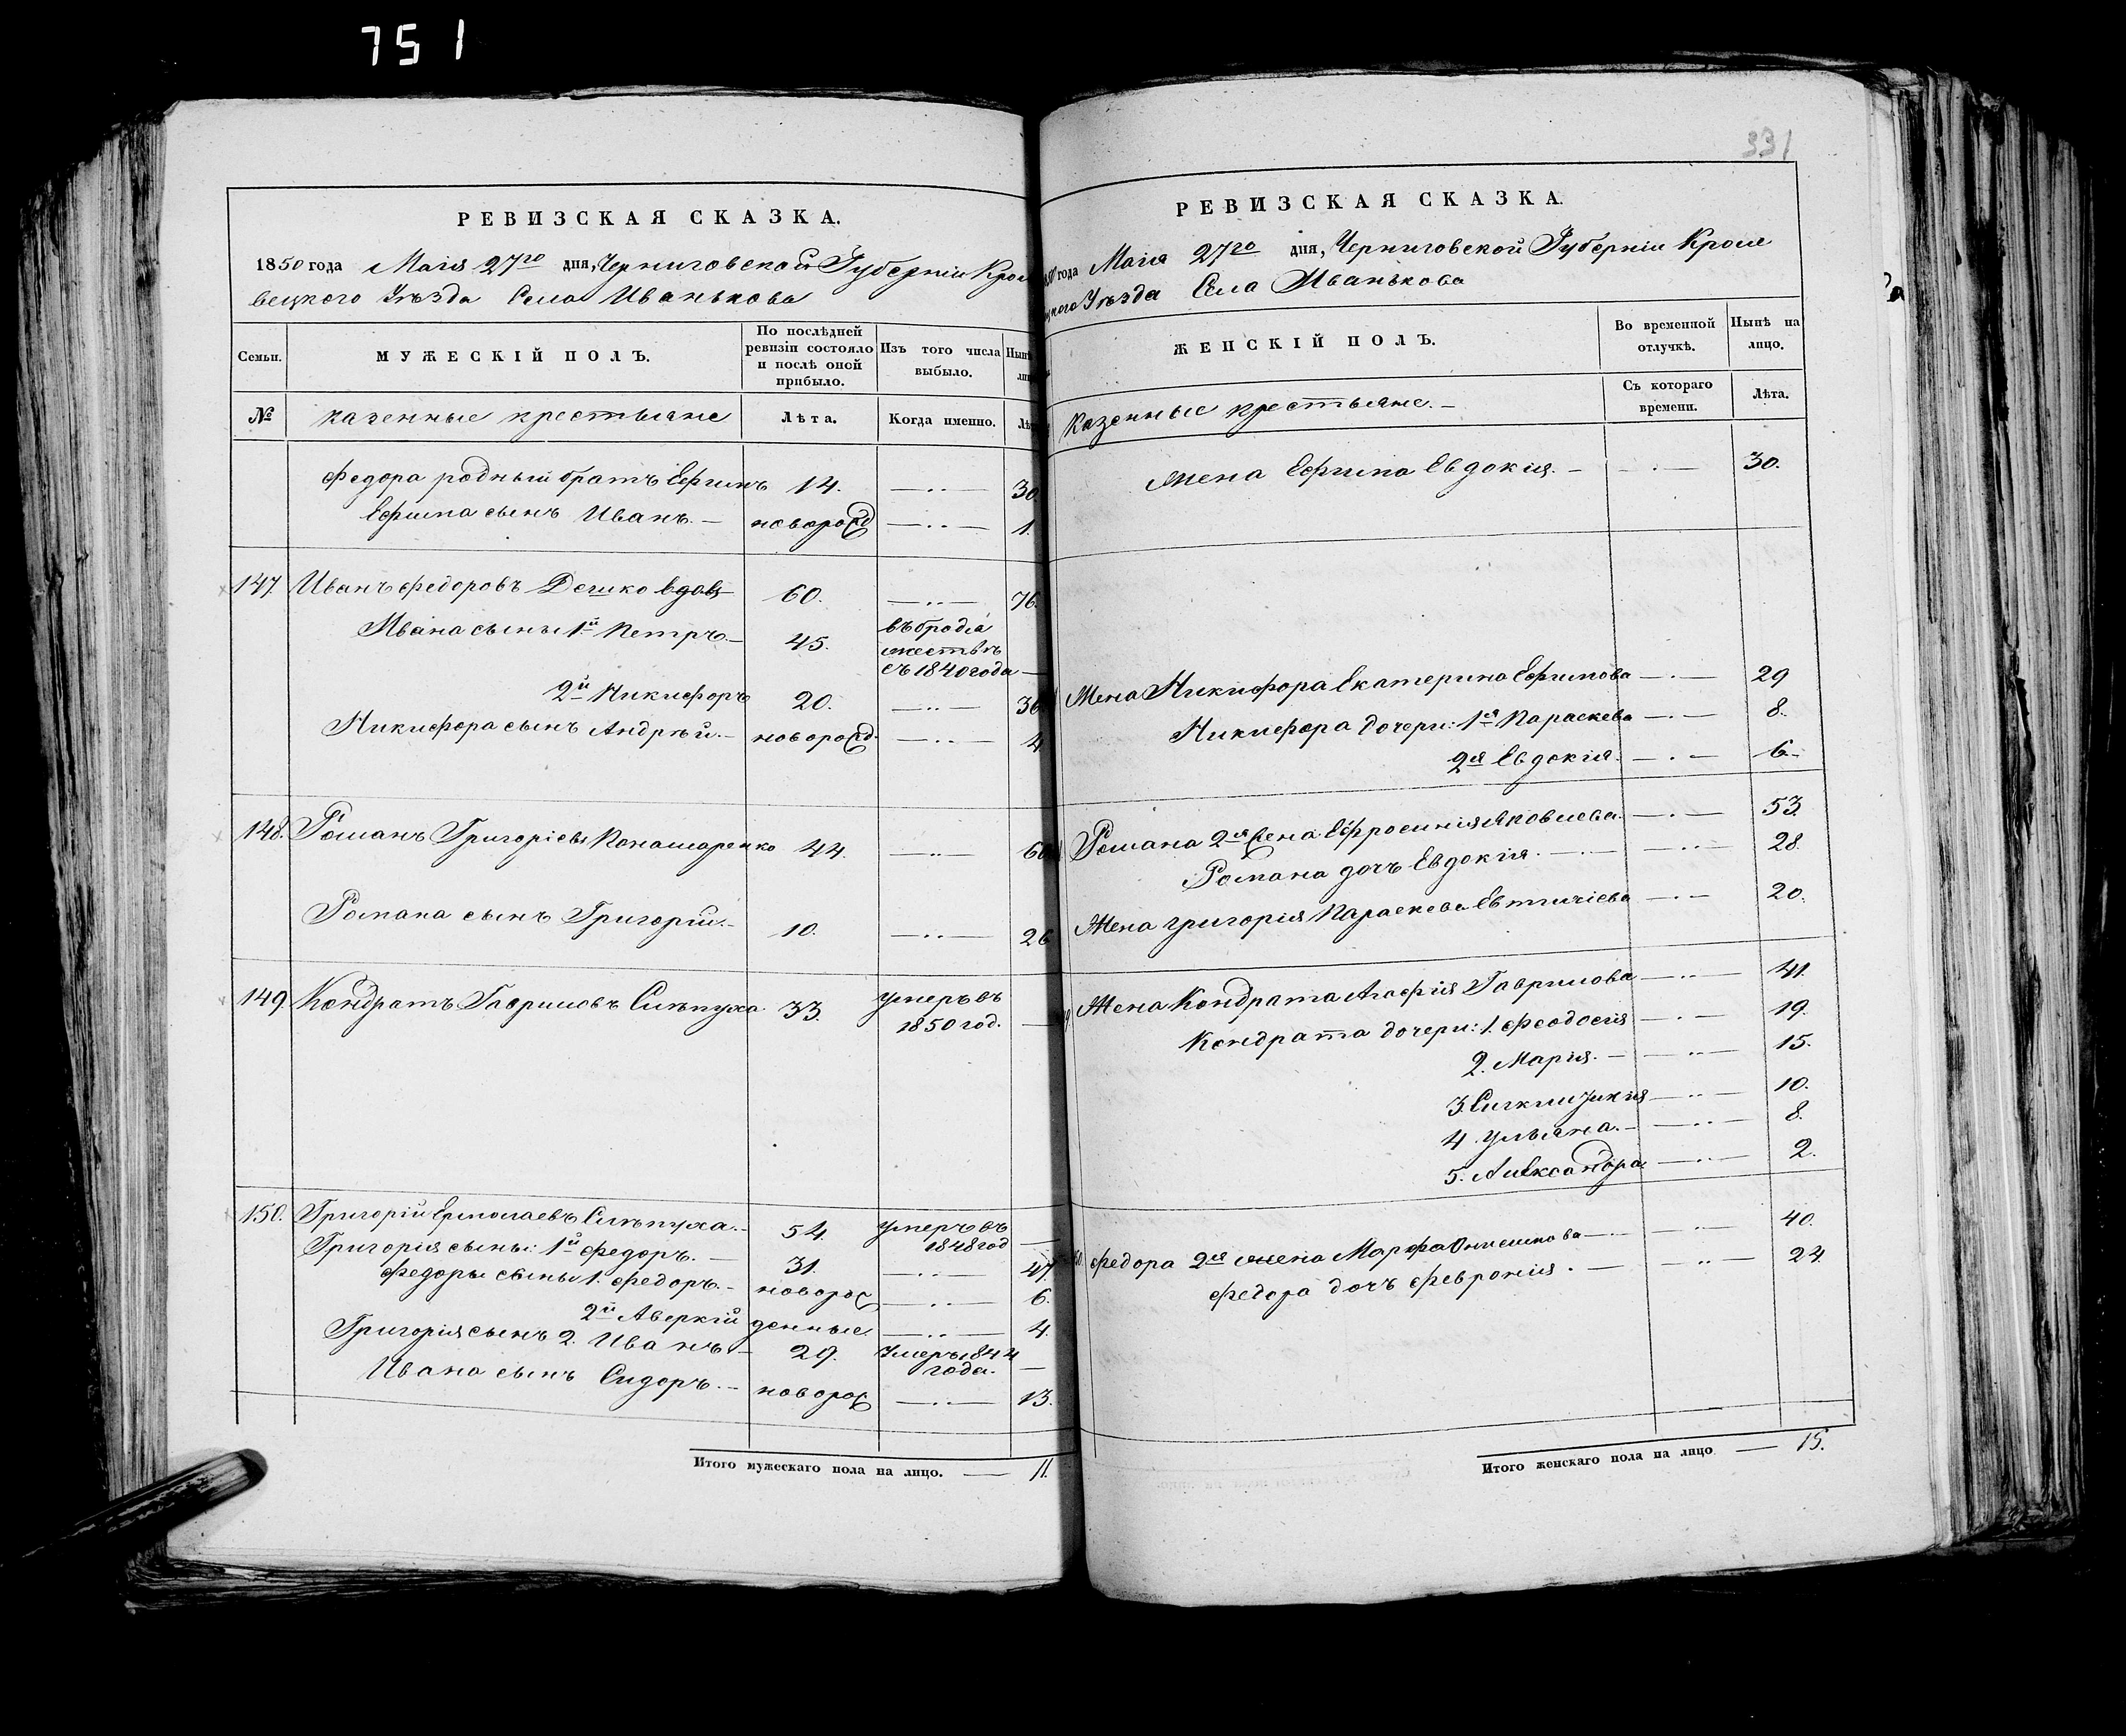 751
РЕВИЗСКАЯ СКАЗКА.
1850 года Маія 27го дня, Черниговской Губерніи Крол
вецкого Уѣзда Села Иванькова
Семьи.
МУЖЕСКІЙ ПОЛЪ.
По послѣдней ревизіи состояло и послѣ оной прибыло.
Изъ того числа выбыло.
Нынѣ
№
казенные крестьяне
Лѣта.
Когда именно.
Федора родный братъ Ефимъ 14. —..— 30.
Ефима сынъ Иванъ. —новорожд —..— 1.
147. Иванъ Федоровъ Дешко вдов 60. —..— 76.
Ивана сыны 1й Петръ. — 45. въ бродя
жествѣ
съ 1840 года —
2й Никифоръ 20. —..— 36
Никифора сынъ Андрѣй. — новорожд. —..— 4
148. Романъ Григоріевъ Конашаренко 44. —..— 60
Романа сынъ Григорій. — 10. —..— 26
149. Кондратъ Гавриловъ Слѣпуха. 33. умеръ въ
1850 год. —
150. Григорій Ермолаевъ Слѣпуха. — 54. умеръ въ
1848 год —
Григорія сыны: 1й Федоръ. — 31. —..— 47.
Федоры сыны 1. Федоръ. — новорож —..— 6.
2й Аверкій денные. —..— 4.
Григорія сынъ 2. Иванъ. — 29. Умеръ 1844
года. —
Ивана сынъ Сидоръ. — новорож —..— 13.
Итого мужескаго пола на лицо. — 11.
331
РЕВИЗСКАЯ СКАЗКА.
года Маія 27го дня, Черниговской Губерніи Кроле
Уѣзда Села Иванькова
ЖЕНСКІЙ ПОЛЪ.
Во временной отлучкѣ.
Нынѣ на лицо.
Казенные крестьяне. —
Съ котораго времени.
Лѣта.
Жена Ефима Евдокия. — —.— 30.
Жена Никифора Екатерина Ефимова —.— 29
Никифора дочери: 1я Параскева —.— 8.
2я Евдокія. —.— 6.
Романа 2я жена Ефросинія Яковлева. —.— 53.
Романа дочь Евдокія. — —..— 28.
Жена Григорія Параскева Евтичіева —.— 20.
Жена Кондрата Агафія Гаврилова —..— 41.
Кондрата дочери: 1. Феодосія —.— 19.
2. Марія. — —..— 15.
3. —..— 10.
4. Ульяна. — —..— 8.
5. Александра —..— 2.
Федора 2я жена Марфа —..— 40.
Федора дочь Февронія. — —..— 24.
Итого женскаго пола на лицо — 15.